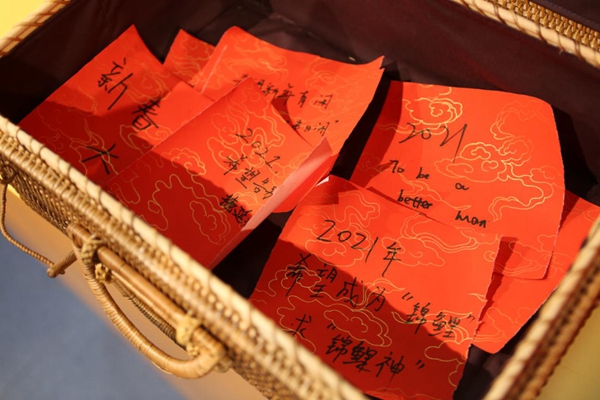 新春
大
2021
希望
2021
To be a
better man
2021年
希望成为“锦鲤”
求“锦鲤神”